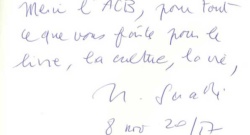 Merci l'ACB, pour tout
ce que vous faites pour le
livre, la culture, la vie,
8 nov 2017